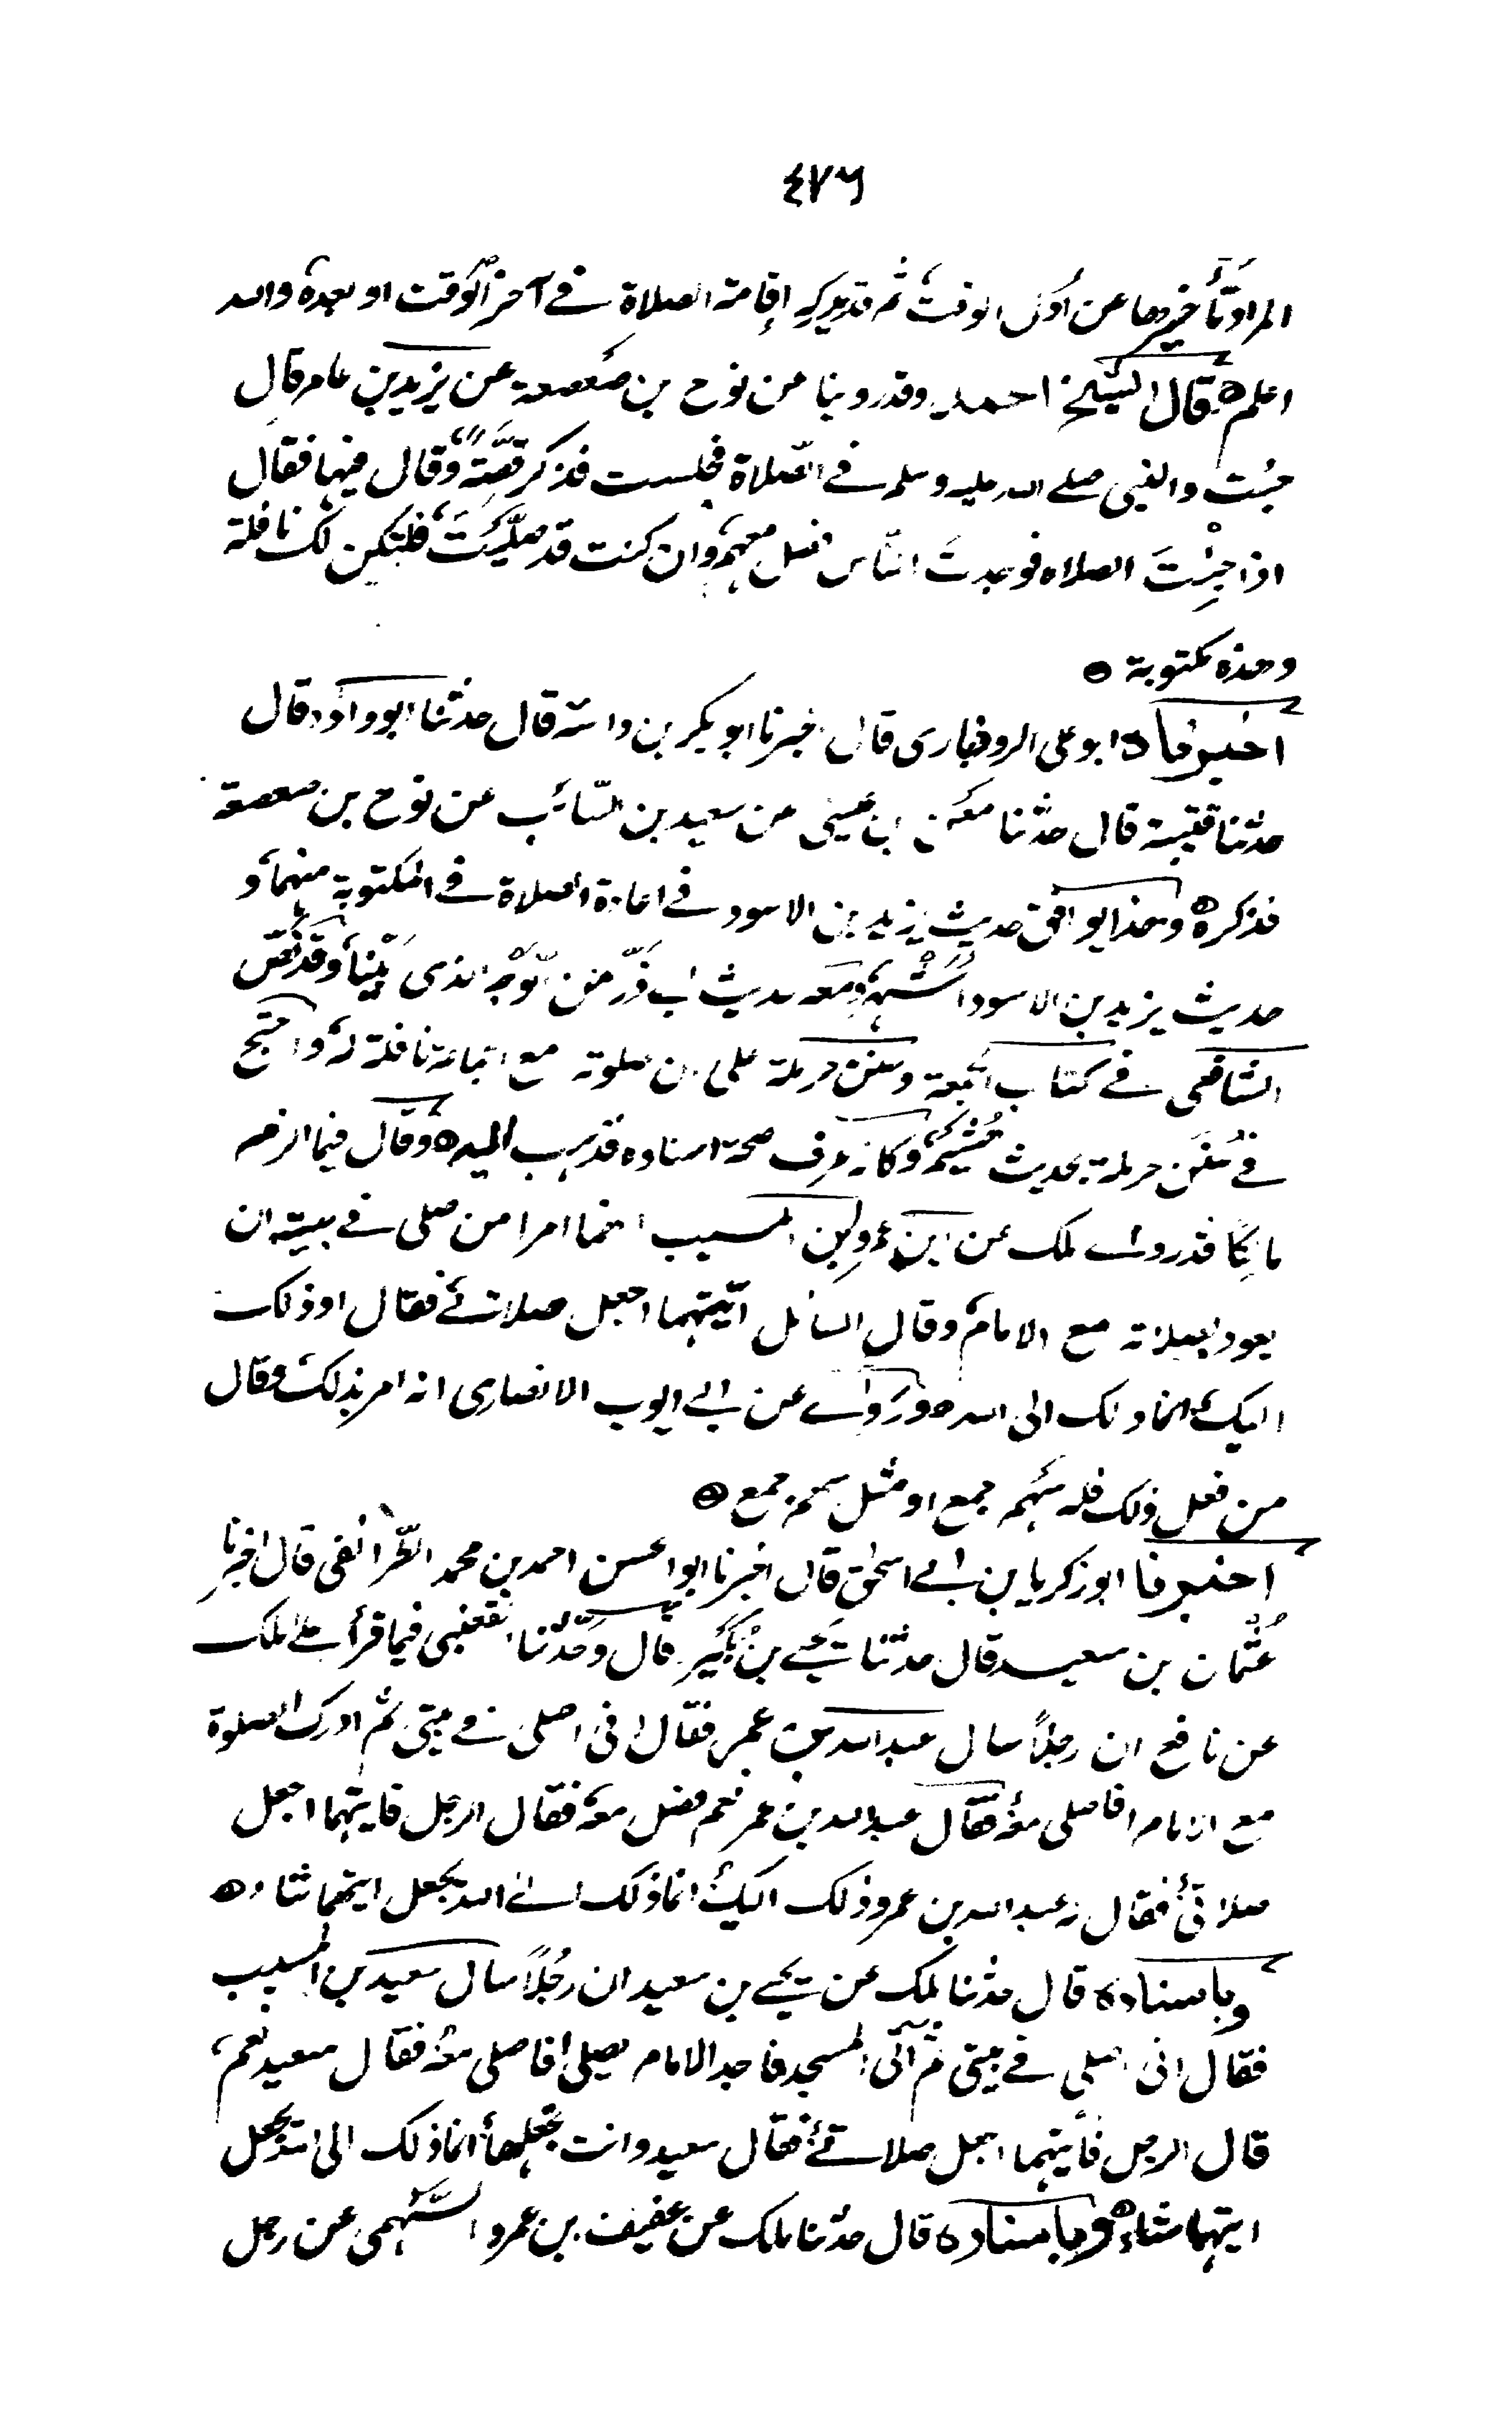 ٤٧٦
المراد تأخيرها عن أول الوقت ثم قد يدركه إقامة الصلاة في آخر الوقت او بعده والله
اعلم ه قال الشيخ احمد وقد روينا عن نوح بن صعصعة عن يزيد بن عامر قال
جئت والنبي صلى الله عليه وسلم في الصلاة فجلست فذكر قصة وقال فيها فقال
اذا جئت الصلاة فوجدت الناس فصل معهم وان كنت قد صليت فلتكن لك نافلة
وهذه مكتوبة ه
اخبرناه ابو علي الروذباري قال اخبرنا ابو بكر بن داسة قال حدثنا ابو داود قال
حدثنا قتيبة قال حدثنا معن بن عيسى عن سعيد بن السائب عن نوح بن صعصعة
فذكره ه وهذا يوافق حديث يزيد بن الاسود في اعادة الصلاة في المكتوبة منهما و
حديث يزيد بن الاسود اشهر ومعه حديث ابي ذر من الوجه الذي بينا وقد نص
الشافعي في كتاب الجمعة وسنن حرملة على ان صلوته مع امامه نافلة له واحتج
في سنن حرملة بحديث هشيم وكانه عرف صحة اسناده فذهب اليه ه وقال فيما الزم
مالكا قد روى ملك عن ابن عمر وابن المسيب انهما امرا من صلى في بيته ان
يعود لصلاته مع الامام وقال السائل ايتهما اجعل صلاتي فقال اوذلك
اليك انما ذلك الى الله ه وروى عن ابي ايوب الانصاري انه امر بذلك وقال
من فعل ذلك فله سهم جمع او مثل سهم جمع ه
اخبرنا ابو زكريا بن ابي اسحق قال اخبرنا ابو الحسن احمد بن محمد الطرائفي قال اخبرنا
عثمان بن سعيد قال حدثنا يحيى بن بكير قال وحدثنا القعنبي فيما قرأ على ملك
عن نافع ان رجلاً سال عبد الله بن عمر فقال اني اصلي في بيتي ثم ادرك الصلوة
مع الامام افاصلي معه فقال عبد الله بن عمر نعم فصل معه فقال الرجل فايتهما اجعل
صلاتي فقال له عبد الله بن عمر وذلك اليك انما ذلك الى الله يجعل ايتهما شاء ه
وباسناده قال حدثنا ملك عن يحيى بن سعيد ان رجلاً سال سعيد بن المسيب
فقال اني اصلي في بيتي ثم آتي المسجد فاجد الامام يصلي افاصلي معه فقال سعيد نعم
قال الرجل فأيتهما اجعل صلاتي فقال سعيد وانت تجعلها انما ذلك الى الله يجعل
ايتهما شاء ه وباسناده قال حدثنا ملك عن عفيف بن عمرو السهمي عن رجل